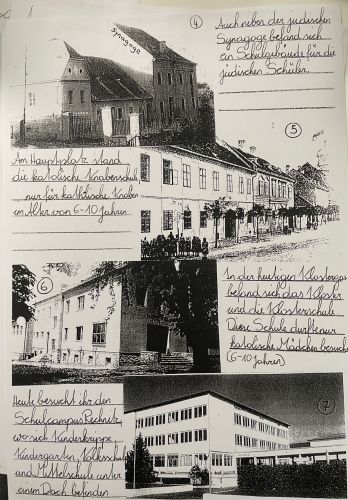 Synagoge
4
Auch neben der jüdischen
Synagoge befand sich
ein Schulgebäude für die
jüdischen Schüler.
5
Am Hauptplatz stand
die katolische Knabenschule
nur für katholische Knaben
im Alter von 6-10 Jahren
6
In der heutigen Klostergas
befand sich das Kloster
und die Klosterschule.
Diese Schule durften nur
katolische Mädchen besuch
(6-10 Jahren)
7
Heute besucht ihr den
Schulcampus Rechnitz,
wo sich Kinderkrippe,
Kindergarten, Volksschule
und Mittelschule unter
einem Dach befinden